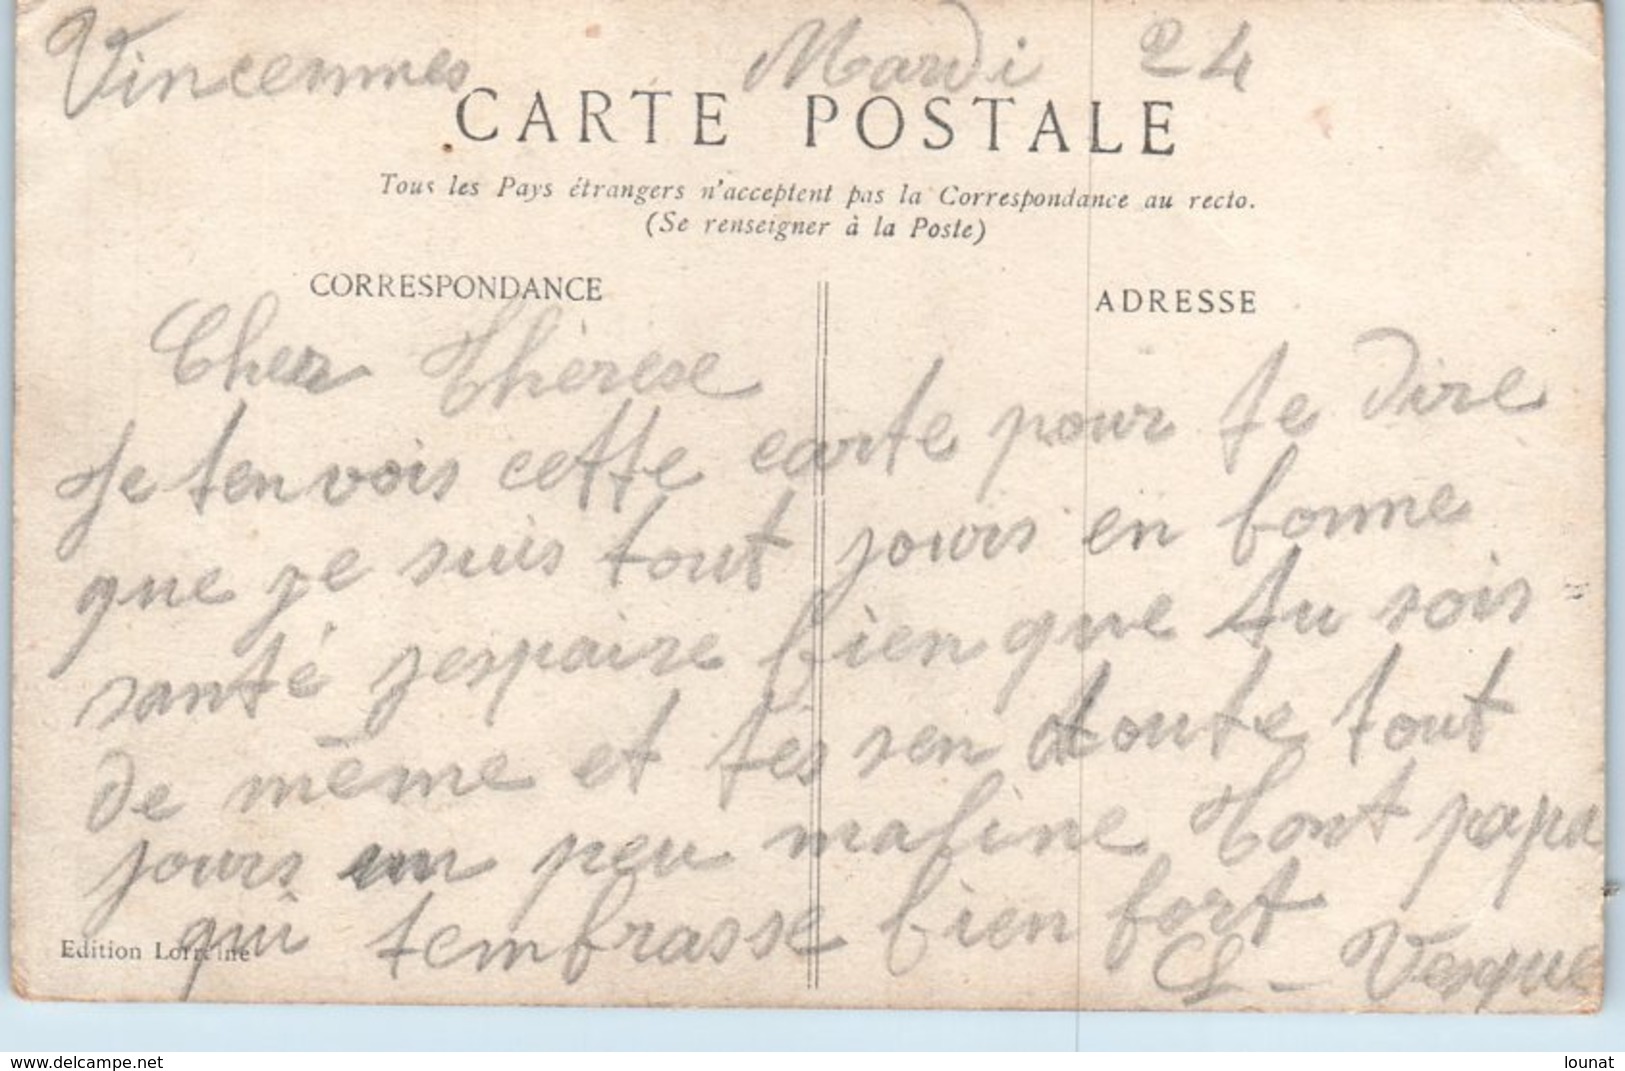 Vincennes Mardi 24
CARTE POSTALE
Tous les Pays étrangers n'acceptent pas la Correspondance au recto.
(Se renseigner à la Poste)
CORRESPONDANCE
ADRESSE
Cher Thérese
Je tenvois cette carte pour te dire
que je suis tout jours en bonne
santé jespaire bien que tu sois
de même et tes sen doute tout
jours un peu maline Tont papa
qui tembrasse bien fort
Vesque
Edition Lorraine
www.delcampe.net
lounat